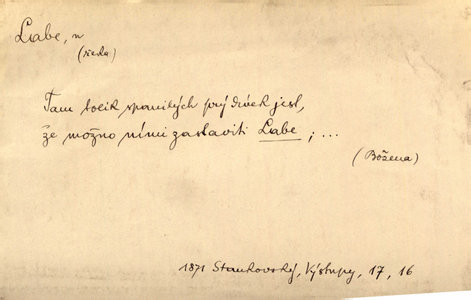 Labe, n
(řeka)
Tam tolik spanilých prý dívek jest,
že možno nimi zastaviti Labe ; ...
(Božena)
1871 Stankovský, Výstupy, 17, 16